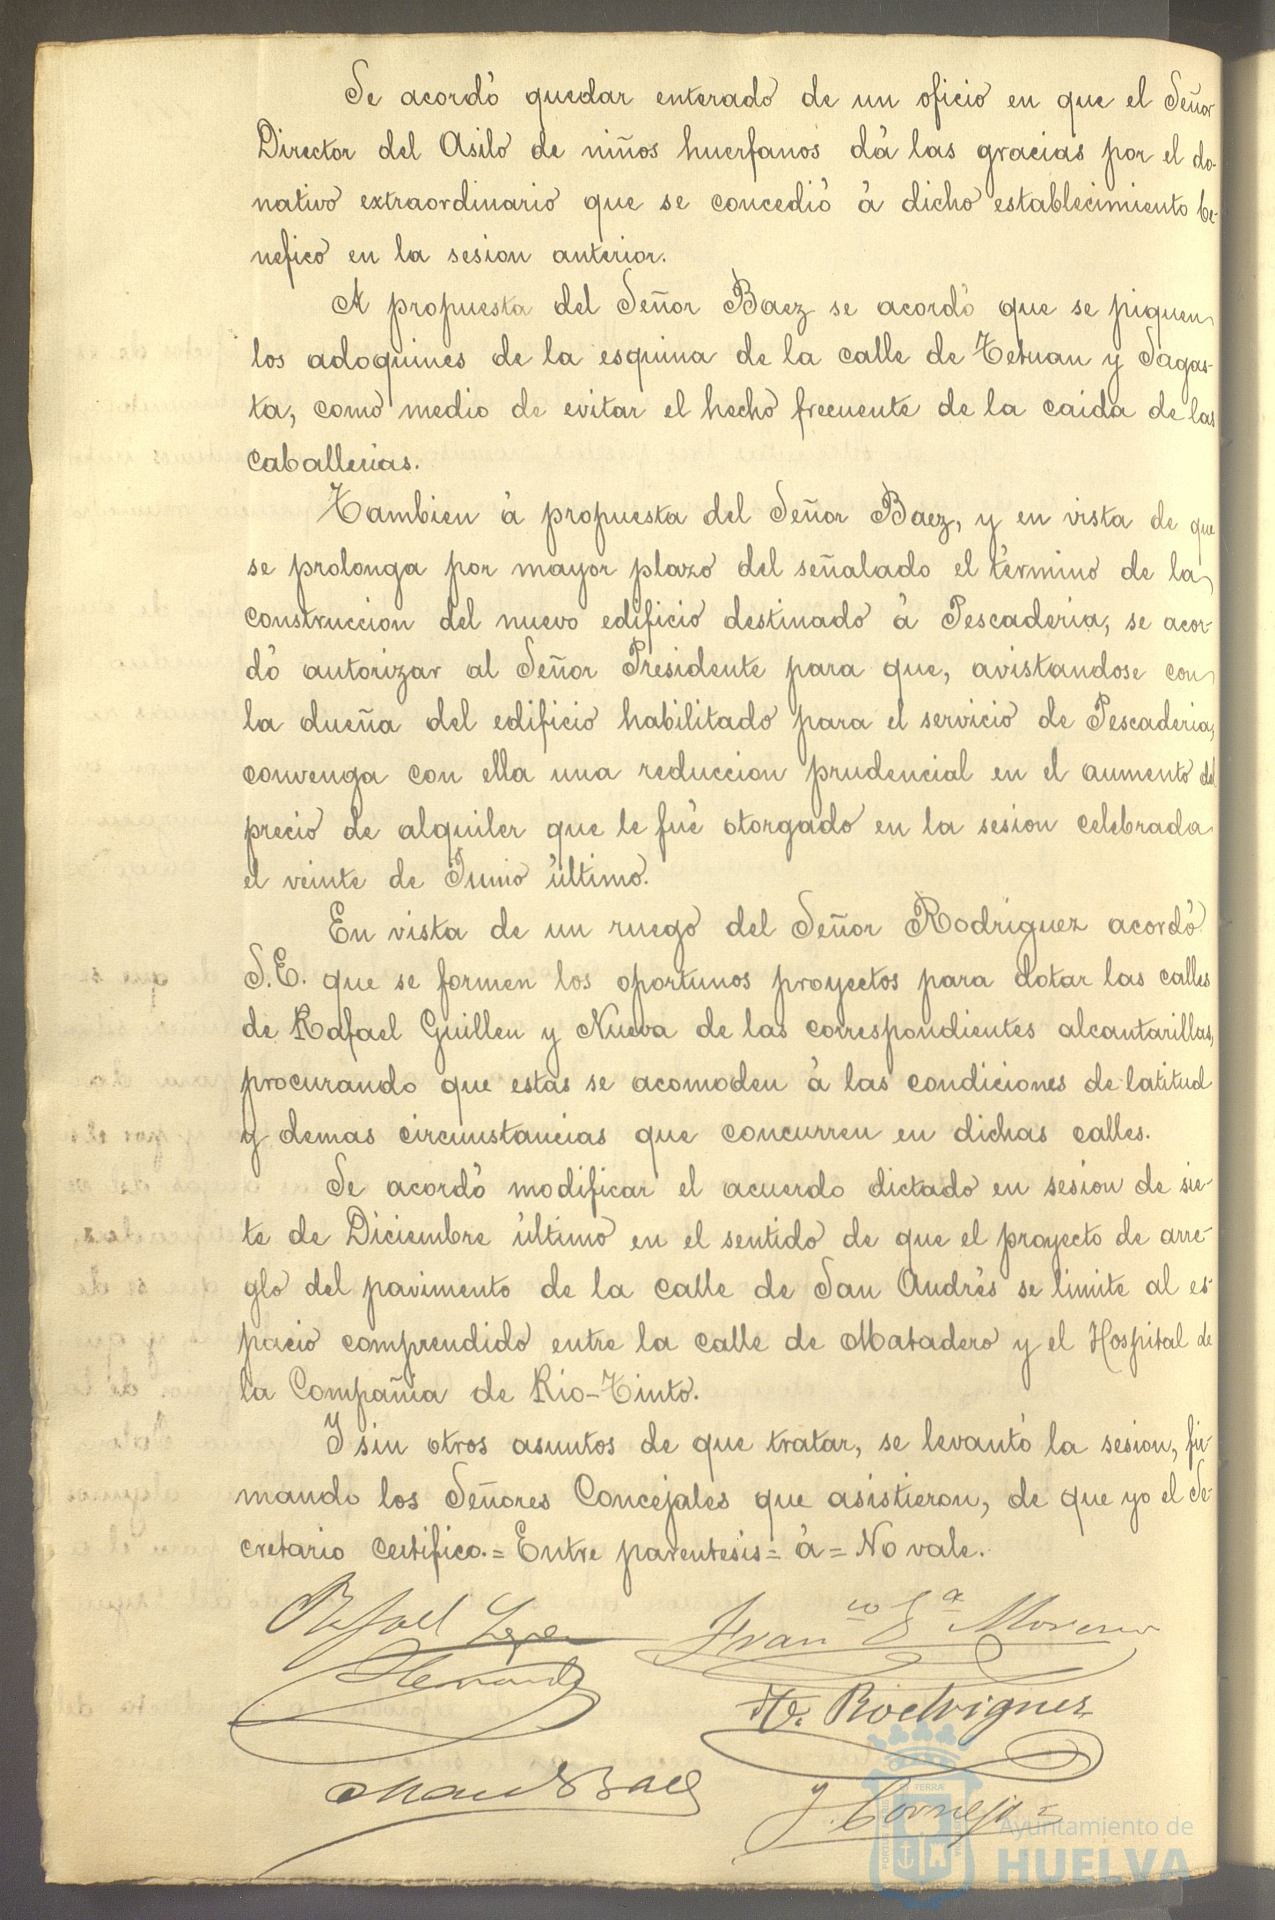 Se acordó quedar enterado de un oficio en que el Señor
Director del Asilo de niños huerfanos dá las gracias por el do-
nativo extraordinario que se concedió á dicho establecimiento be-
nefico en la sesion anterior.
A propuesta del Señor Baez se acordó que se piquen
los adoquines de la esquina de la calle de Tetuan y Sagas-
ta, como medio de evitar el hecho frecuente de la caida de las
caballerias.
Tambien á propuesta del Señor Baez, y en vista de que
se prolonga por mayor plazo del señalado el término de la
construccion del nuevo edificio destinado á Pescaderia, se acor-
dó autorizar al Señor Presidente para que, avistandose con
la dueña del edificio habilitado para el servicio de Pescaderia,
convenga con ella una reduccion prudencial en el aumento del
precio de alquiler que le fué otorgado en la sesion celebrada
el veinte de Junio último.
En vista de un ruego del Señor Rodríguez acordó
S.E. que se formen los oportunos proyectos para dotar las calles
de Rafael Guillen y Nueva de las correspondientes alcantarillas,
procurando que estas se acomoden á las condiciones de latitud
y demas circunstancias que concurren en dichas calles.
Se acordó modificar el acuerdo dictado en sesion de sie-
te de Diciembre último en el sentido de que el proyecto de arre-
glo del pavimento de la calle de San Andrés se limite al es-
pacio comprendido entre la calle de Matadero y el Hospital de
la Compañia de Rio-Tinto.
Y sin otros asuntos de que tratar, se levantó la sesion, fir-
mando los Señores Concejales que asistieron, de que yo el Se-
cretario certifico.= Entre parentesis= á= No vale.
Rafael López Franco Gª Moreno
Hernandez
Rodriguez
Man Baez
J. Cornejo
Ayuntamiento de
HUELVA